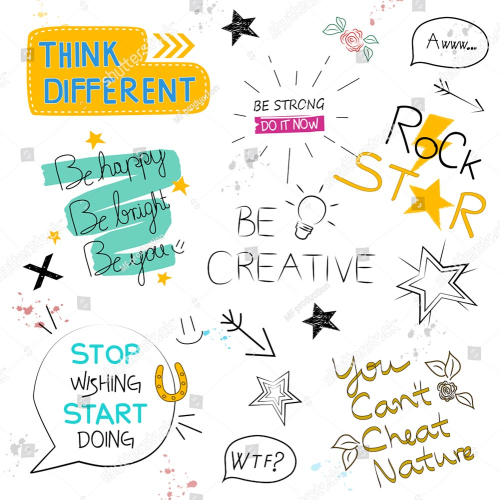 THINK
DIFFERENT
Awww...
BE STRONG
DO IT NOW
ROCK
STAR
Be happy
Be bright
Be you
BE
CREATIVE
STOP
WISHING
START
DOING
WTF?
You
Can't
Cheat
Nature